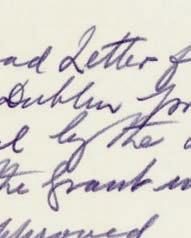 ad Letter f
Dublin pr
l by the
the grant
pproved